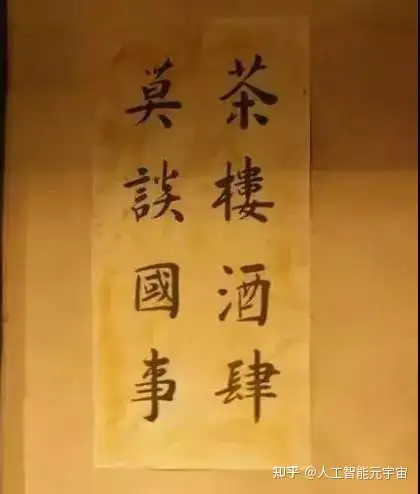 茶樓酒肆
莫談國事
知乎 @人工智能元宇宙